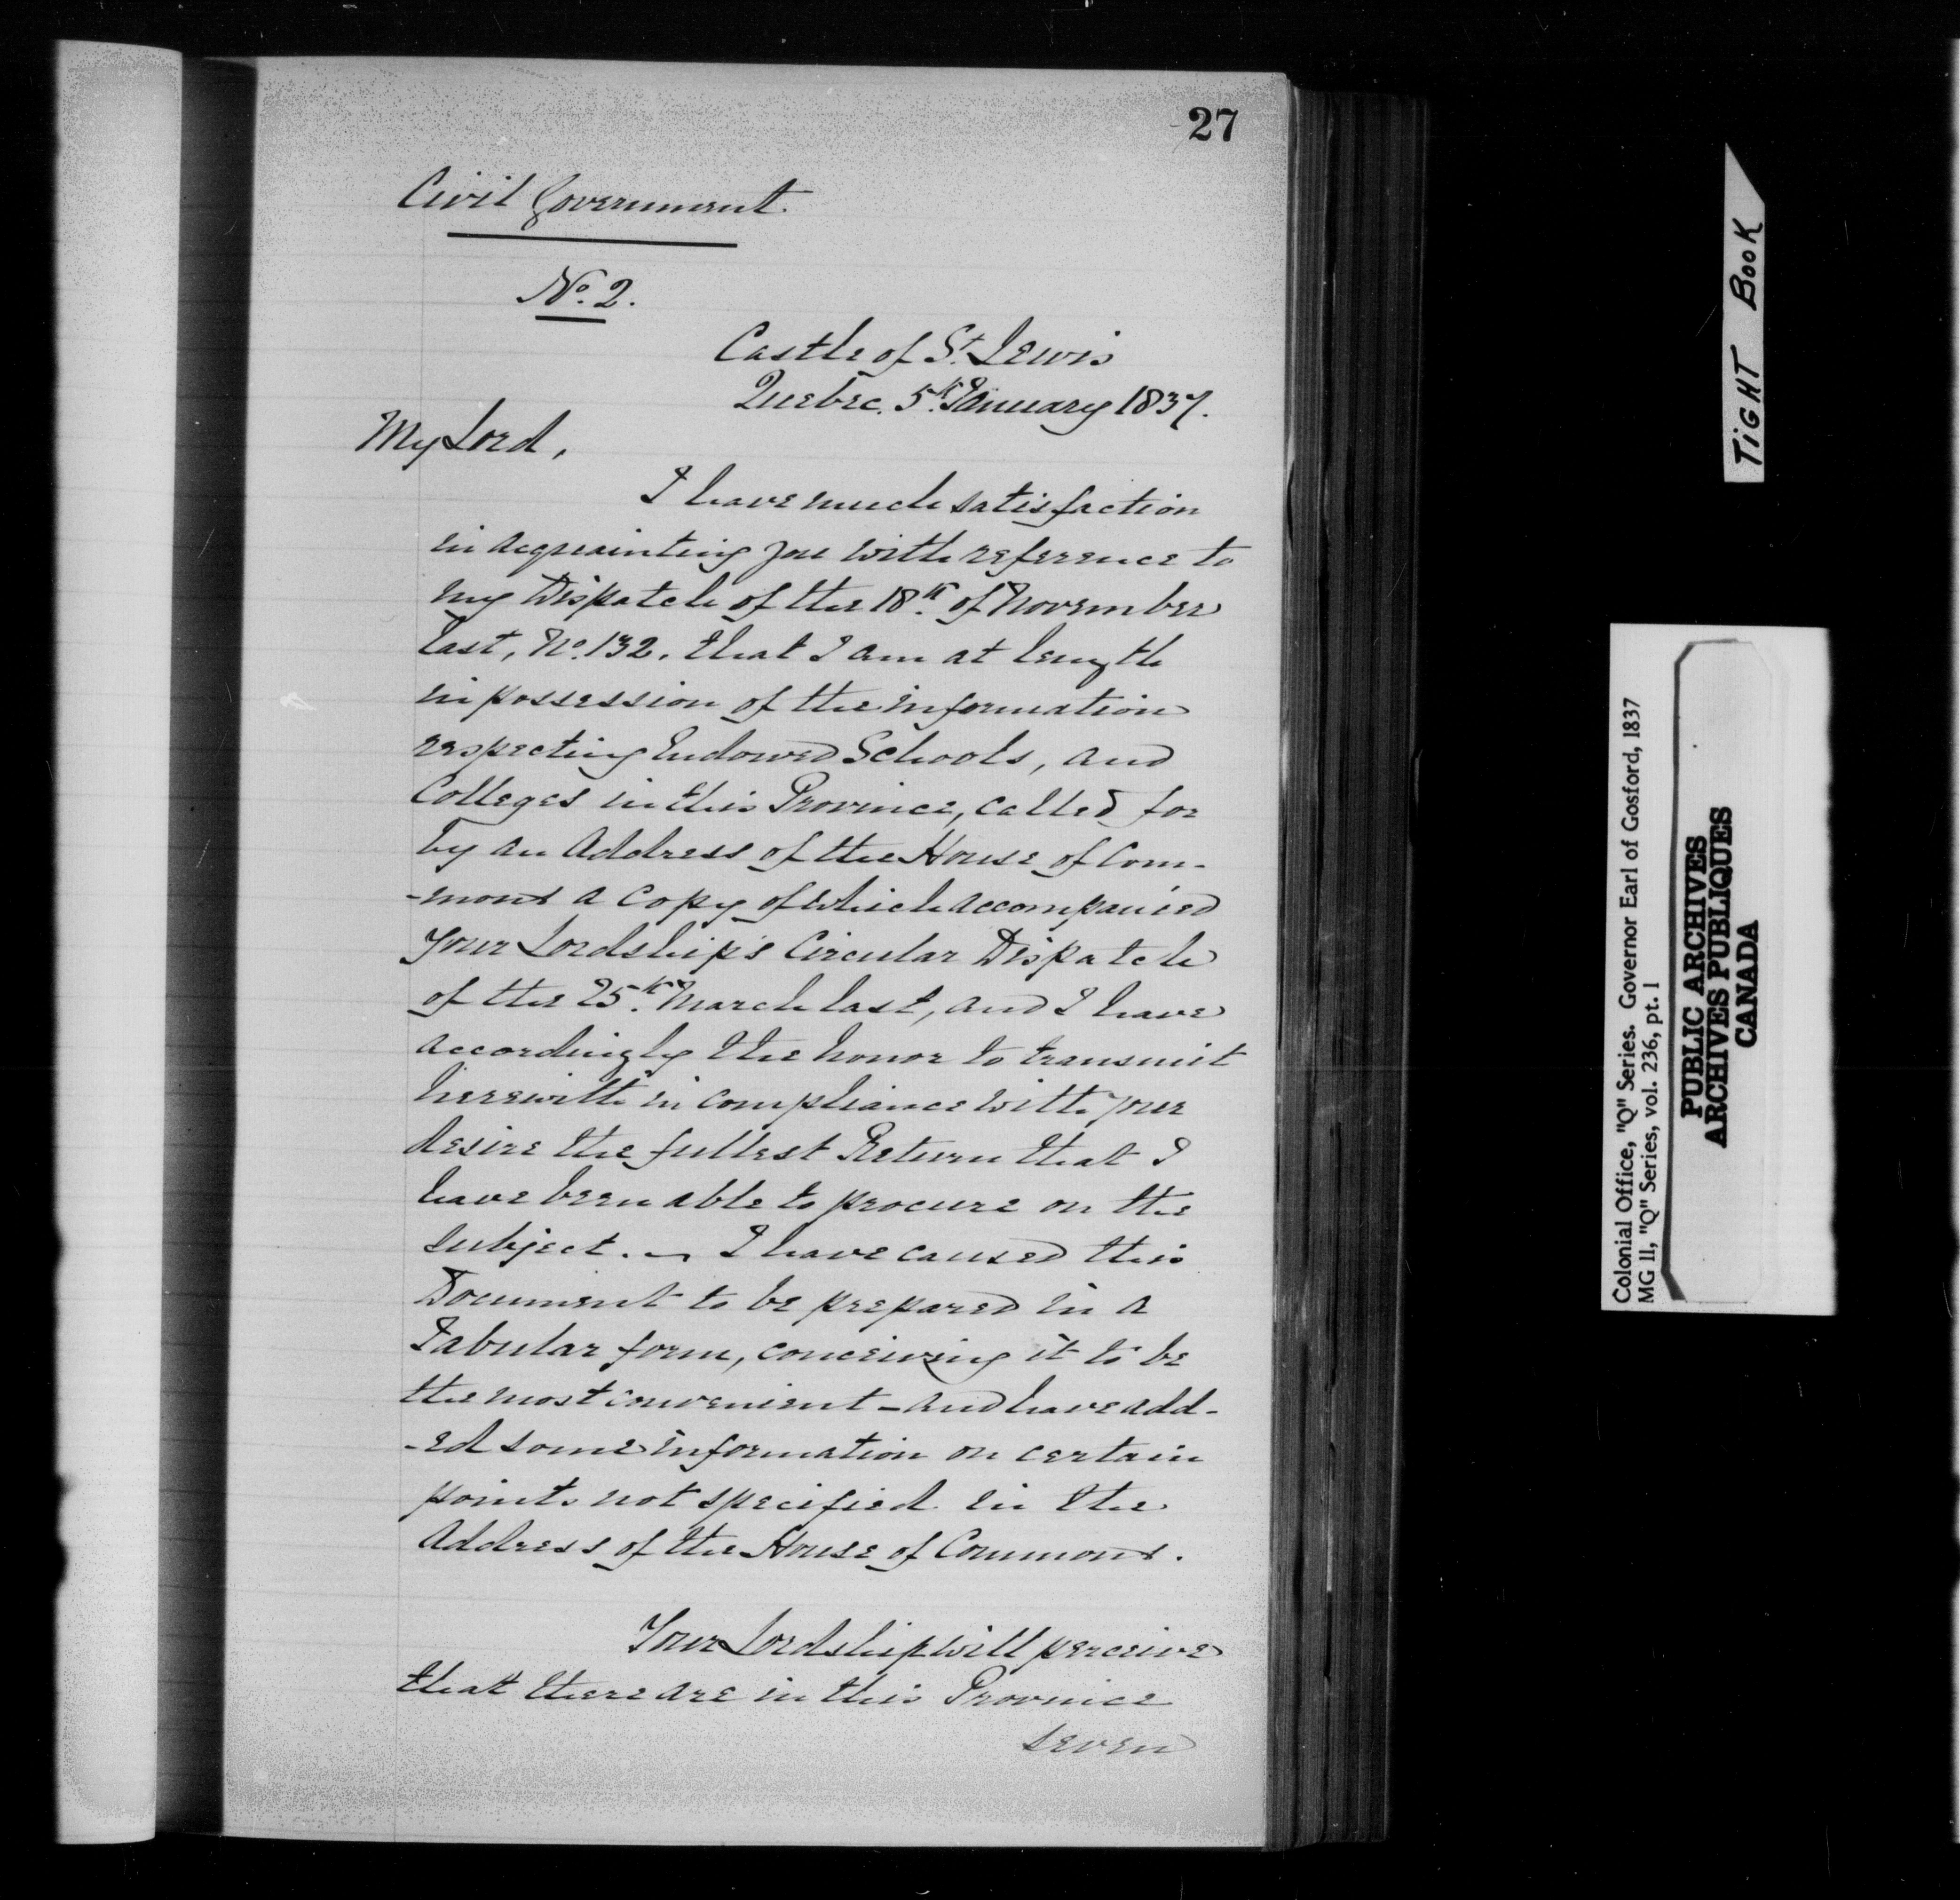 27
Civil Government.
No. 2.
Castle of St. Lewis
Quebec. 5th. January 1837.
My Lord,
I have much satisfaction
in acquainting you with reference to
my Dispatch of the 18th. of November
last, No. 132. that I am at length
in possession of the information
respecting Endowed Schools, and
Colleges in this Province, called for
by an Address of the House of Com-
-mons a Copy of which accompanied
Your Lordship's Circular Dispatch
of the 25th. March last, and I have
accordingly the honor to transmit
herewith in compliance with your
desire the fullest Return that I
have been able to procure on the
subject. — I have caused this
Document to be prepared in a
Tabular form, conceiving it to be
the most convenient - and have add-
-ed some information on certain
points not specified in the
Address of the House of Commons.
Your Lordship will perceive
that there are in this Province
seven
TIGHT BOOK
Colonial Office, "Q" Series. Governor Earl of Gosford, 1837
MG 11, "Q" Series, vol. 236, pt. 1
PUBLIC ARCHIVES
ARCHIVES PUBLIQUES
CANADA